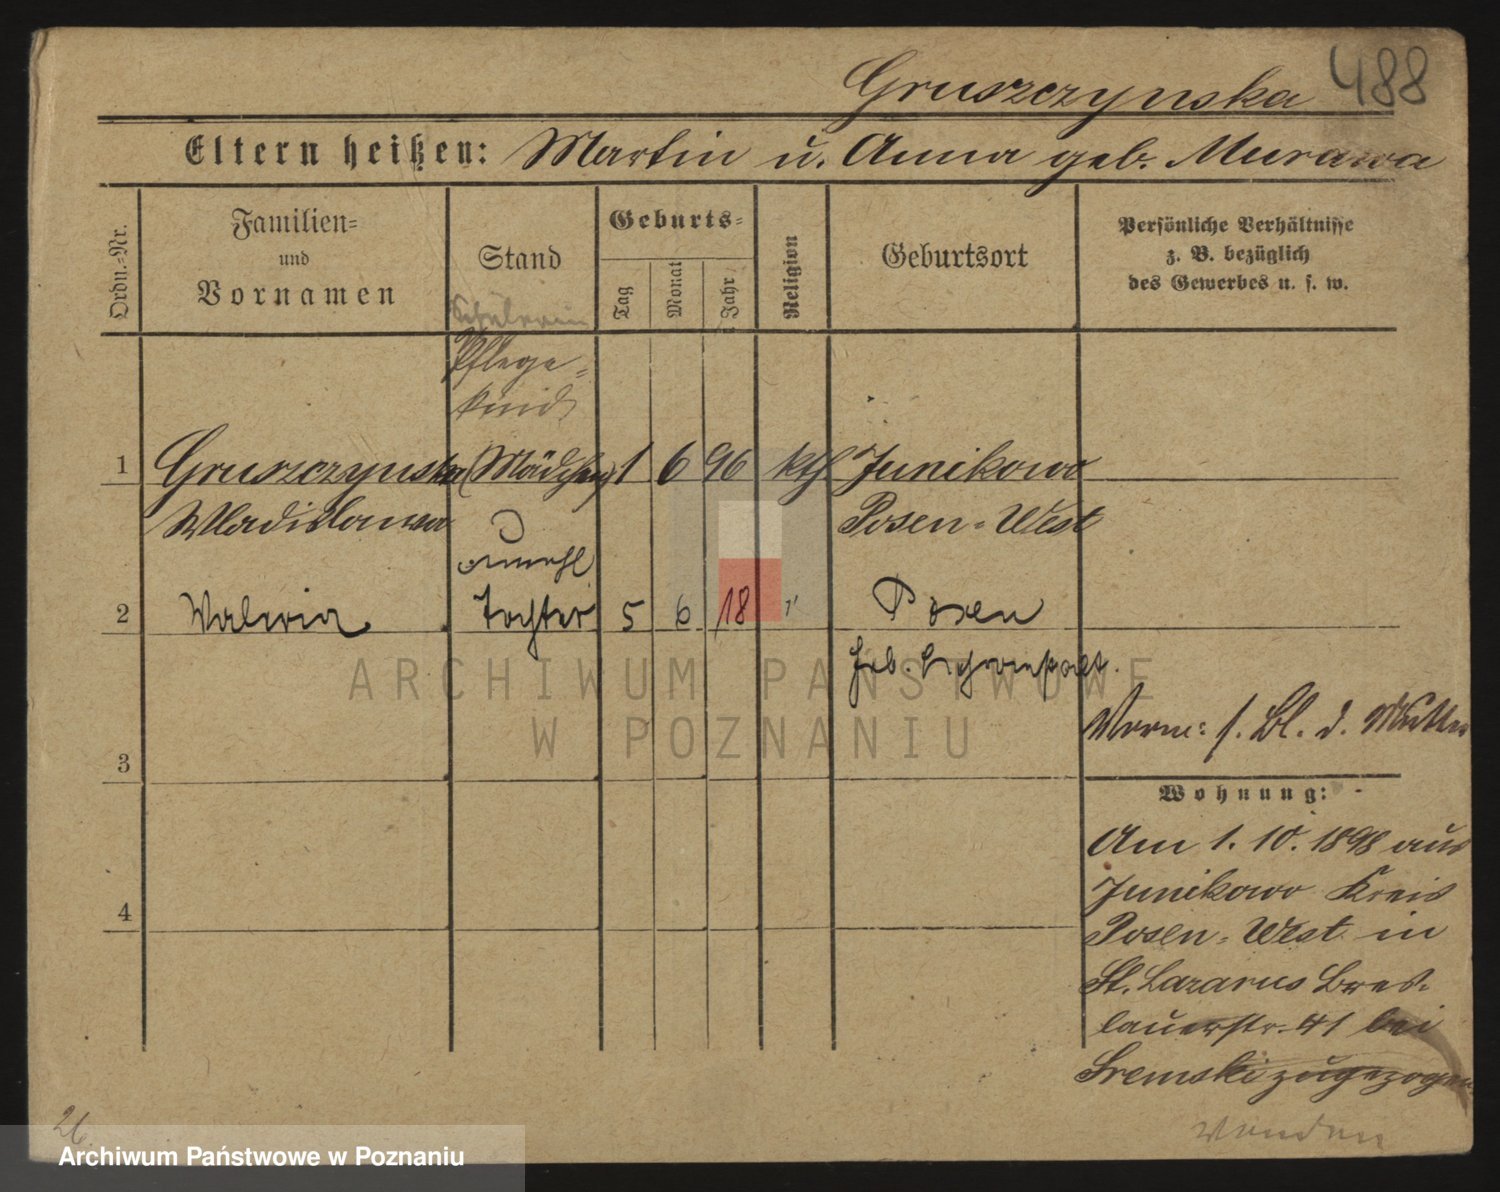 Gruszczynska 488
Eltern heißen: Martin u. Anna geb. Murawa
Ordn.-Nr.
Familien-
und
Vornamen
Stand
Geburts-
Tag
Monat
Jahr
Religion
Geburtsort
Persönliche Verhältnisse
z. B. bezüglich
des Gewerbes u. s. w.
Schülerin
Pflege-
kind
1 Gruszczynska (Mädchen) 1 6 96 kth Junikowo
Wladislawa Posen-West
unehl
2 Waleria Tochter 5 6 18 " Posen
3
4
Vorm: s. Bl. d. Mutter
Wohnung:
Am 1. 10. 1898 aus
Junikowo Kreis
Posen-West in
St. Lazarus Bres-
lauerstr. 41 bei
Sremski zugezogen
wenden
26.
ARCHIWUM PAŃSTWOWE
W POZNANIU
Archiwum Państwowe w Poznaniu